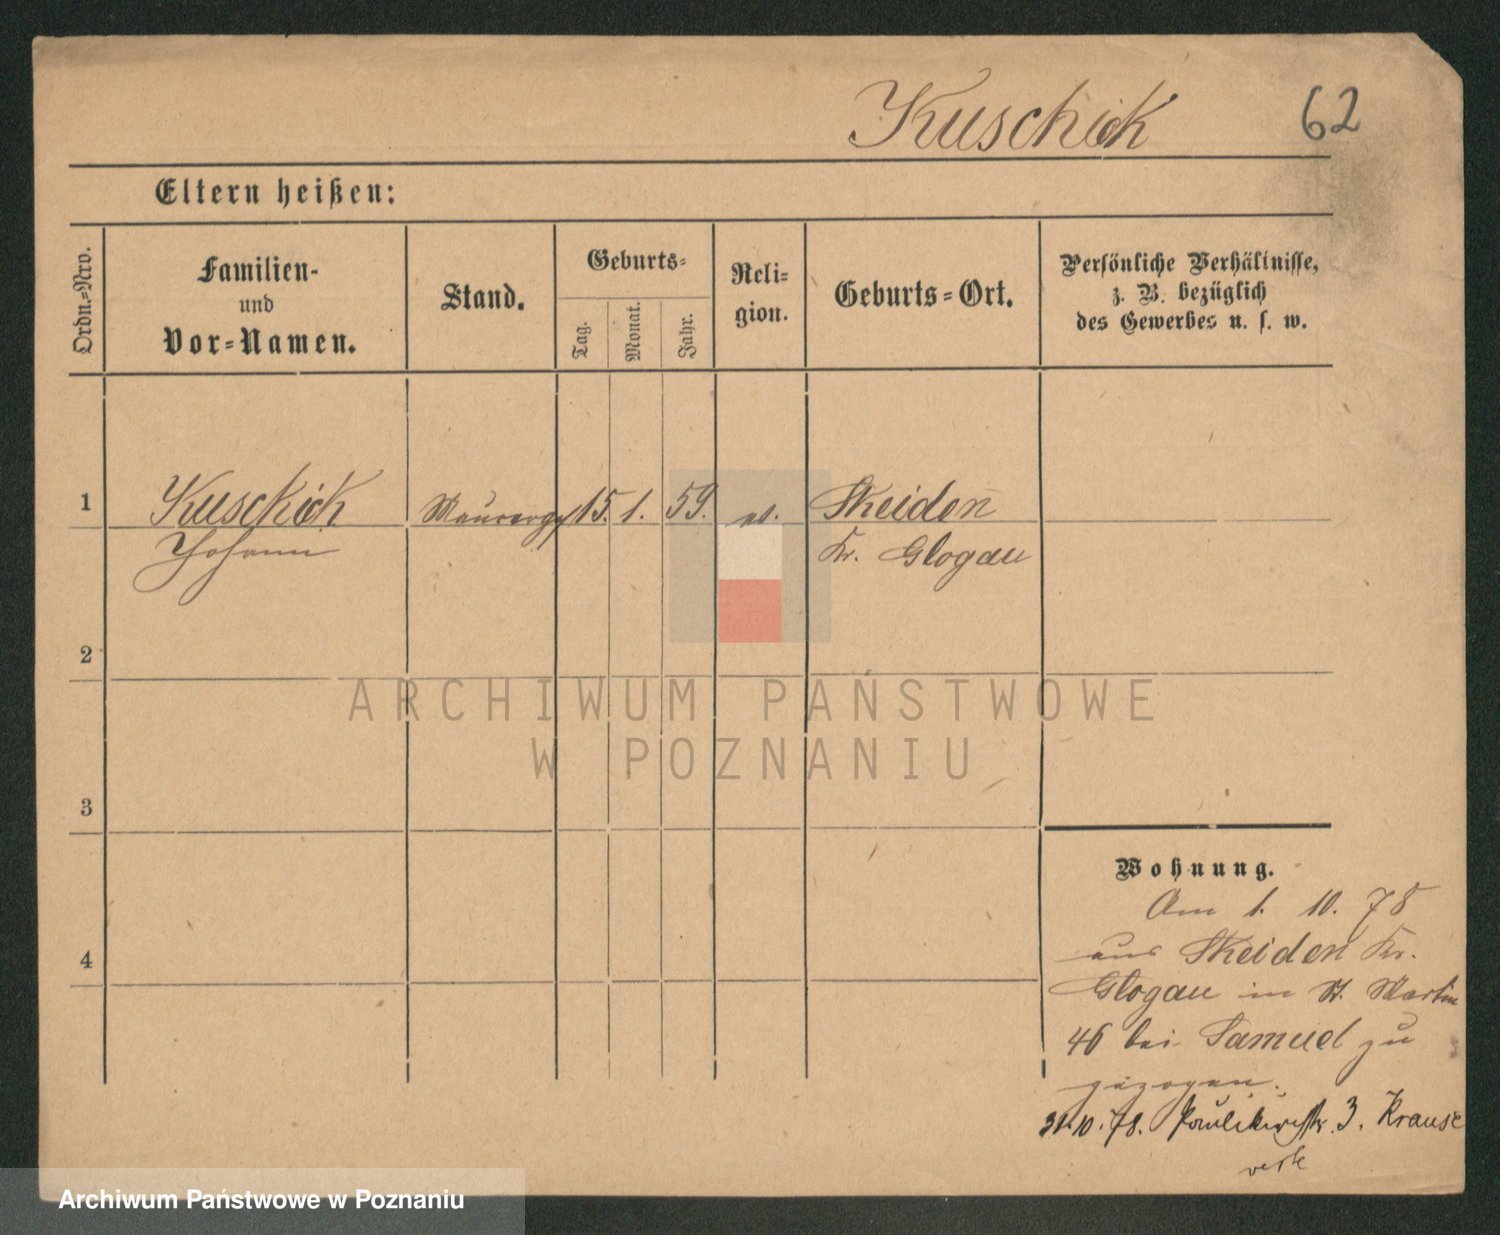 Kuschick
62
Eltern heißen:
Ordn.=Nro.
Familien-
und
Vor=Namen.
Stand.
Geburts=
Tag.
Monat.
Jahr.
Reli=
gion.
Geburts=Ort.
Persönliche Verhältnisse,
z. B. bezüglich
des Gewerbes u. s. w.
1
Kuschick
Johann
15. 1. 59.
Skeiden
Kr. Glogau
2
ARCHIWUM PAŃSTWOWE
W POZNANIU
3
Wohnung.
Am 1. 10. 78
aus Skeiden Kr.
Glogau in St. Martin
46 bei Samuel zu
gezogen.
31.10.78. 3. Krause
4
Archiwum Państwowe w Poznaniu